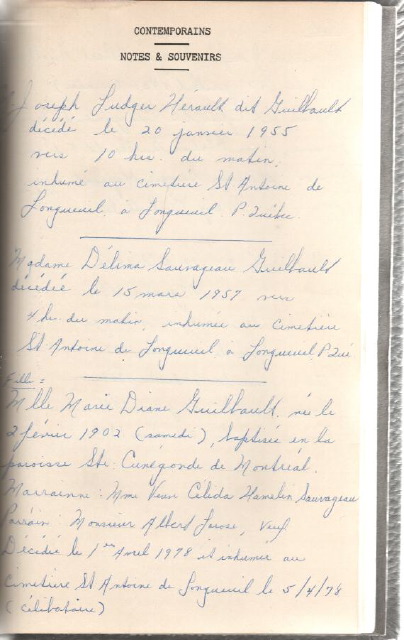 CONTEMPORAINS
NOTES & SOUVENIRS
Joseph Ludger Hérault dit Guilbault
décédé le 20 janvier 1955
vers 10 hrs. du matin.
inhumé au cimetière St Antoine de
Longueuil, à Longueuil P. Québec
Madame Délima Sauvageau Guilbault
décédée le 15 mars 1957 vers
4 hr. du matin, inhumée au cimetière
St Antoine de Longueuil à Longueuil, P. Qué
Fille =
Mlle Marie Diane Guilbault, née le
2 février 1902 (samedi), baptisée en la
paroisse Ste. Cunégonde de Montréal.
Marrainne: Mme Veuve Hamelin Sauvageau
Parrain: Monsieur Albert, Veuf
Décédée le 1er Avril 1978 et inhumée au
Cimetière St Antoine de Longueuil le 5/4/78
(célibataire)